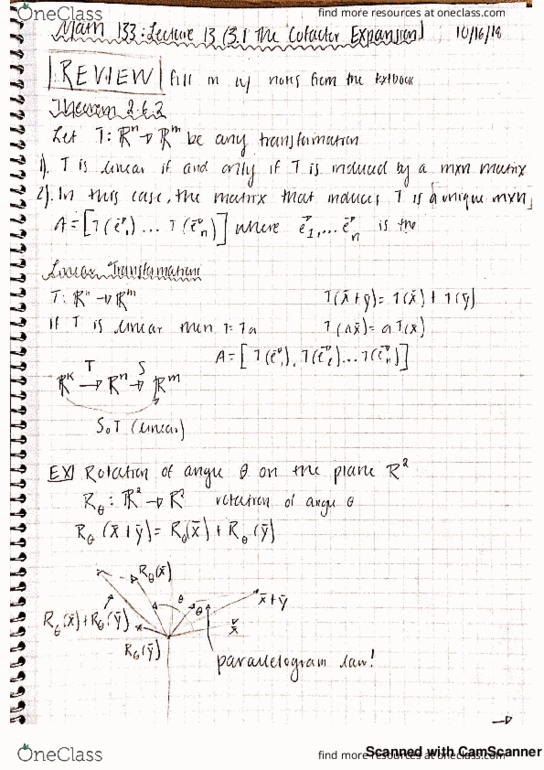 OneClass
find more resources at oneclass.com
Math 133: Lecture 13 (3.1 The Cofactor Expansion) 10/16/18
REVIEW fill in w/ notes from the textbook
Theorem 2.6.2
Let T: ℝⁿ → ℝᵐ be any transformation
1). T is linear if and only if T is induced by a mxn matrix
2). In this case, the matrix that induces T is a unique mxn,
A = [T(e⃗₁) ... T(e⃗ₙ)] where e⃗₁, ... e⃗ₙ is the
Linear Transformations
T: ℝⁿ → ℝᵐ T(x̄+ȳ) = T(x̄) + T(ȳ)
If T is linear then T = Ta T(ax̄) = aT(x̄)
A = [T(e⃗₁), T(e⃗₂) ... T(e⃗ₙ)]
T S
ℝᴷ → ℝⁿ → ℝᵐ
S∘T (linear)
EX) Rotation of angle θ on the plane ℝ²
R_θ : ℝ² → ℝ² rotation of angle θ
R_θ (x̄+ȳ) = R_θ(x̄) + R_θ(ȳ)
R_θ(x̄)
θ
θ
x̄+ȳ
R_θ(x̄)+R_θ(ȳ)
x̄
R_θ(ȳ)
parallelogram law!
OneClass
find more resources at oneclass.com
Scanned with CamScanner